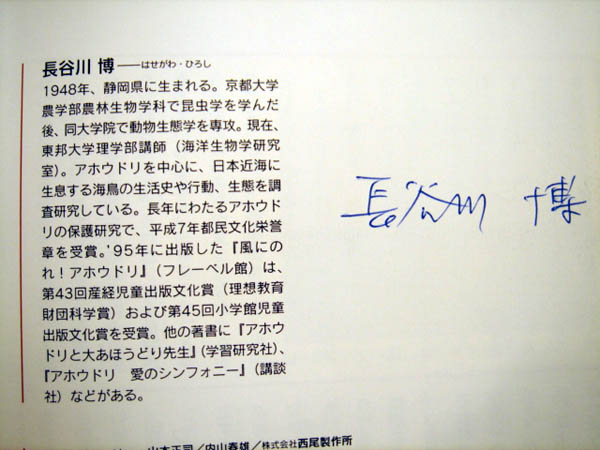 長谷川 博──はせがわ・ひろし
1948年、静岡県に生まれる。京都大学
農学部農林生物学科で昆虫学を学んだ
後、同大学院で動物生態学を専攻。現在、
東邦大学理学部講師(海洋生物学研究
室)。アホウドリを中心に、日本近海に
生息する海鳥の生活史や行動、生態を調
査研究している。長年にわたるアホウド
リの保護研究で、平成7年都民文化栄誉
章を受賞。'95年に出版した『風にの
れ!アホウドリ』(フレーベル館)は、
第43回産経児童出版文化賞(理想教育
財団科学賞)および第45回小学館児童
出版文化賞を受賞。他の著書に『アホウ
ドリと大あほうどり先生』(学習研究社)、
『アホウドリ 愛のシンフォニー』(講談
社)などがある。
長谷川 博
山本正司/内山春雄/株式会社西尾製作所